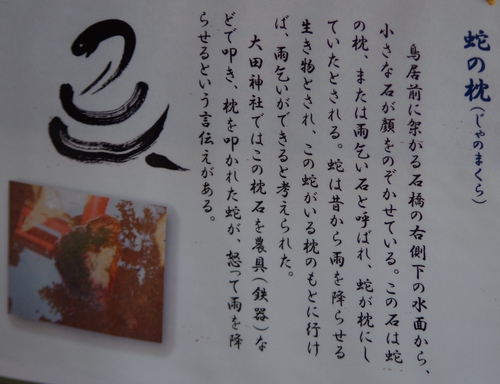 蛇の枕(じゃのまくら)
鳥居前に架がる石橋の右側下の水面から、
小さな石が顔をのぞかせている。この石は蛇
の枕、または雨乞い石と呼ばれ、蛇が枕にし
ていたとされる。蛇は昔から雨を降らせる
生き物とされ、この蛇がいる枕のもとに行け
ば、雨乞いができると考えられた。
大田神社ではこの枕石を農具(鉄器)な
どで叩き、枕を叩かれた蛇が、怒って雨を降
らせるという言伝えがある。